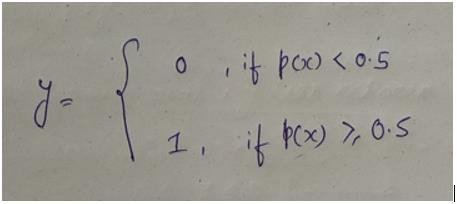 y = { 0 , if p(x) < 0.5
1 , if p(x) ⩾ 0.5